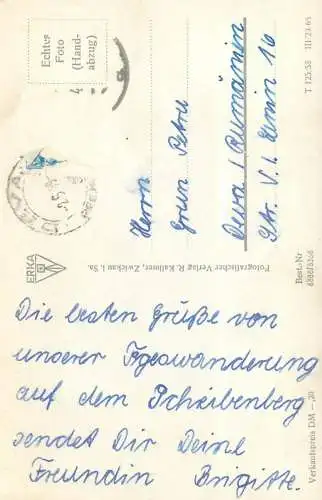 Die besten Grüße von
unserer Tgeswanderung
auf dem Scheibenberg
sendet Dir Deine
Freundin Brigitte.
Echtes
Foto
(Hand-
abzug)
Herrn
Grun Petru
Deva / Rumänien
Str. V. I. Lenin 16
DEVA
ERKA
Fotografischer Verlag R. Kallmer, Zwickau i. Sa.
T 125/58 III/23/65
Best.-Nr.
Verkaufspreis DM –,20